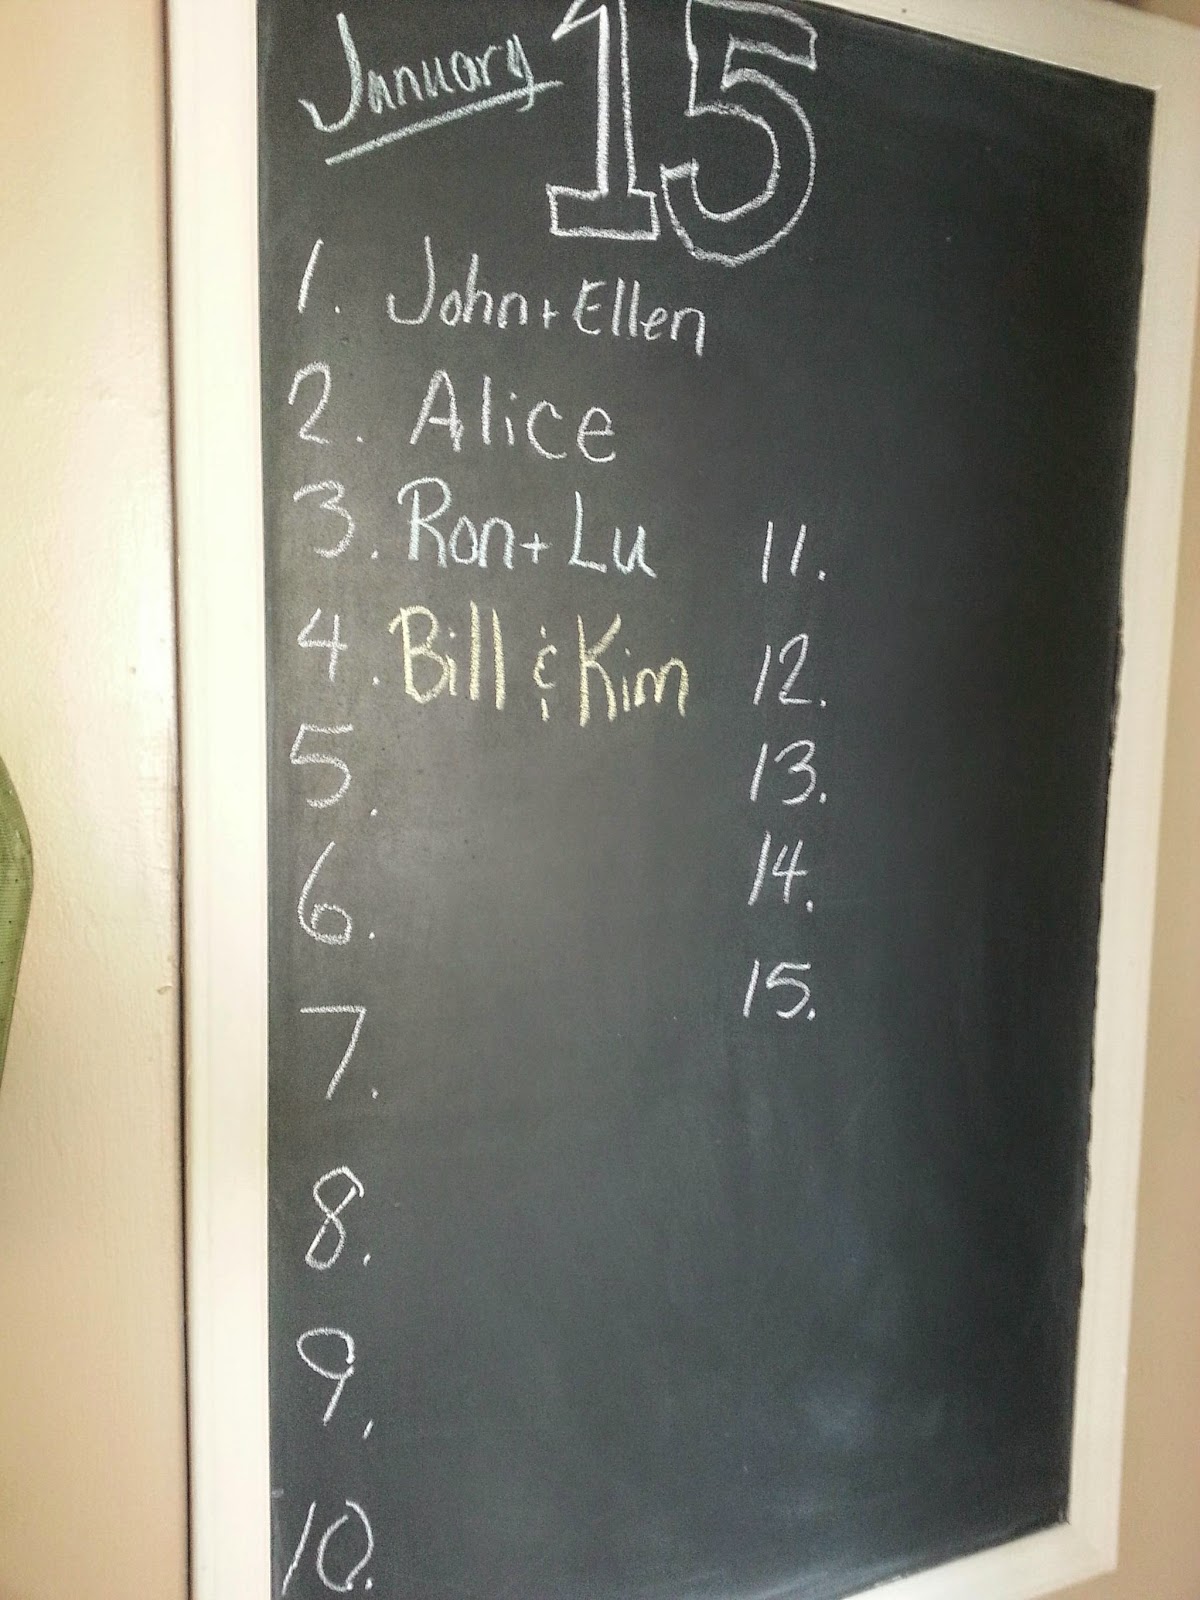 January 15
1. John + Ellen
2. Alice
3. Ron + Lu
4. Bill & Kim
5.
6.
7.
8.
9.
10.
11.
12.
13.
14.
15.